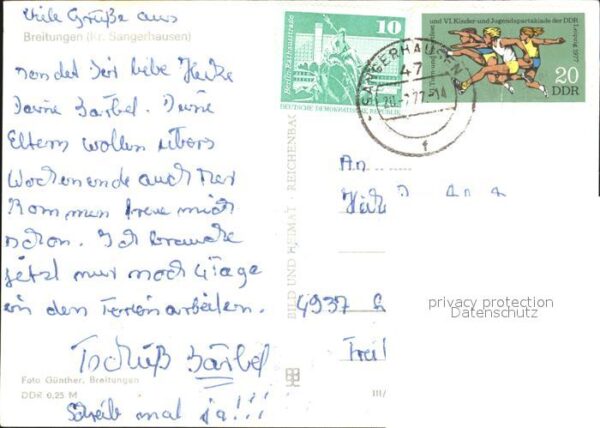 Viele Grüße aus
Breitungen (Kr. Sangerhausen)
sendet Dir liebe Heike
Deine Bärbel. Deine
Eltern wollen übers
Wochenende auch her
kommen freue mich
schon. Ich brauche
jetzt nur noch 4 Tage
in den Ferien arbeiten.
Tschüß Bärbel
Foto Günther, Breitungen
DDR 0,25 M
Schreib mal ja!!!
BILD UND HEIMAT · REICHENBA
III/
Berlin, Rathausstraße
10
DEUTSCHE DEMOKRATISCHE REPUBLIK
SANGERHAUSEN
47
-14
f
und VI. Kinder- und Jugendspartakiade der DDR
Leipzig 1977
20
DDR
An
4937
privacy protection
Datenschutz